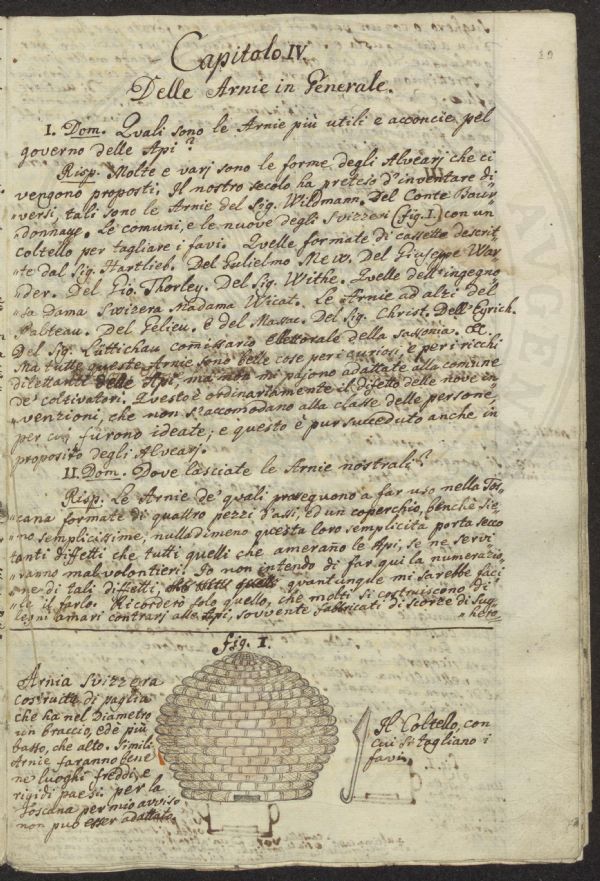 Capitolo IV.
Delle Arnie in Generale.
I. Dom. Quali sono le Arnie più utili e acconcie pel
governo delle Api?
Risp. Molte e varj sono le forme degli Alvearj che ci
vengono proposti. Il nostro secolo ha preteso d'inventare di"
"versi, tali sono le Arnie del Sig. Wildmann. Del Conte Bour"
"donnaye. Le comuni, e le nuove degli Svizzeri (fig. I.) con un
coltello per tagliare i favi. Quelle formate di cassette descrit"
"te dal Sig. Hartlieb. Del Gulielmo Mew. Del Giuseppe War"
"der. Del Gio. Thorley. Del Sig. Withe. Quelle dell'ingegno"
"sa Dama Swizera Madama Vicat. Le Arnie ad alzi del
Palteau. Del Gelieu. e del Massac. Del Sig. Christ. Dell'Eyrich.
Del Sig. Lüttichau comissario elettorale della Sassonia. &c.
Ma tutte queste Arnie sono belle cose per i curiosi, e per i ricchi
dilettanti delle Api, ma non mi pajono adattate alla comune
de' coltivatori. Questo è ordinariamente il difetto delle nove in"
"venzioni, che non s'accomodano alla classe delle persone,
per cui furono ideate; e questo è pur succeduto anche in
proposito degli Alvearj.
II. Dom. Dove lasciate le Arnie nostrali?
Risp. Le Arnie de' quali proseguono a far uso nella Tos"
"cana formate di quattro pezzi d'assi, ed un coperchio, benchè sie"
"no semplicissime, nulladimeno questa loro semplicita porta seco
tanti diffetti che tutti quelli che amerano le Api, se ne servi"
"ranno mal volontieri. Io non intendo di far qui la numerazio"
"ne di tali diffetti, quantunque mi sarebbe faci"
"le il farlo. Ricorderò solo quello, che molti si costruiscono di
legni amari contrarj alle Api, sovvente fabbricati di scorze di Sug"
"hero
fig. I.
Arnia Svizzera
costruitta di paglia
che ha nel Diametro
un braccio, ed è più
basso, che alto. Simili
Arnie faranno bene
ne luoghi freddi, e
rigidi paesi. per la
Toscana per mio avviso
non può esser adattata.
Il Coltello, con
cui si tagliano i
favi.